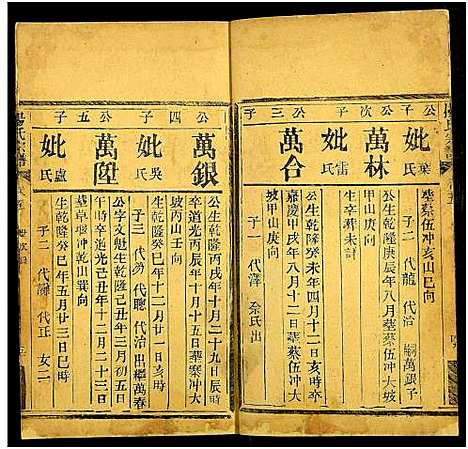 公子
妣葉氏
葬蔡伍冲亥山巳向
子二 代龍 代治 嗣萬銀子
公次子
萬林
公生乾隆庚辰年八月葬蔡伍冲大坡
甲山庚向
妣雷氏
生辛葬未討
公三子
萬合
公生乾隆癸未年四月十二日亥時卒
嘉慶甲戌年八月十二日葬蔡伍冲大
坡甲山庚向
子一 代澤 奈氏出
公四子
萬銀
公生乾隆丙戌年十月二十九日辰時
卒道光丙辰年十月十五日葬寨冲大
坡丙山壬向
妣吳氏
生乾隆癸巳年十二月廿一日亥時
子三 代芴 代聰 代治出繼萬春
公五子
萬陞
公字文魁生乾隆己丑年三月初五日
午時卒道光己丑年十二月二十三日
葬草塚冲乾山巽向
妣盧氏
生乾隆癸巳年五月廿三日巳時
子二 代謙 代正 女二
楊氏宗譜